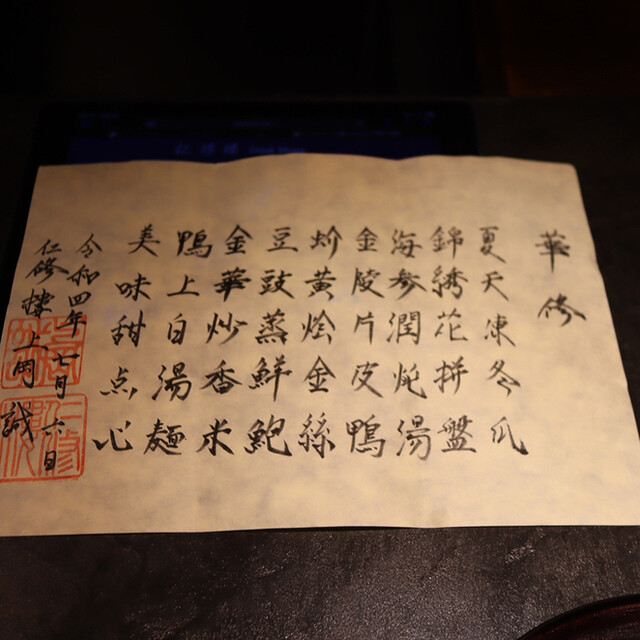 華修
夏天凍冬瓜
錦繡花拼盤
海参潤燉湯
金陵片皮鴨
蚧黄烩金絲
豆豉蒸鮮鮑
金華炒香米
鴨上白湯麺
美味甜点心
令和四年七月六日
仁修樓上岡誠